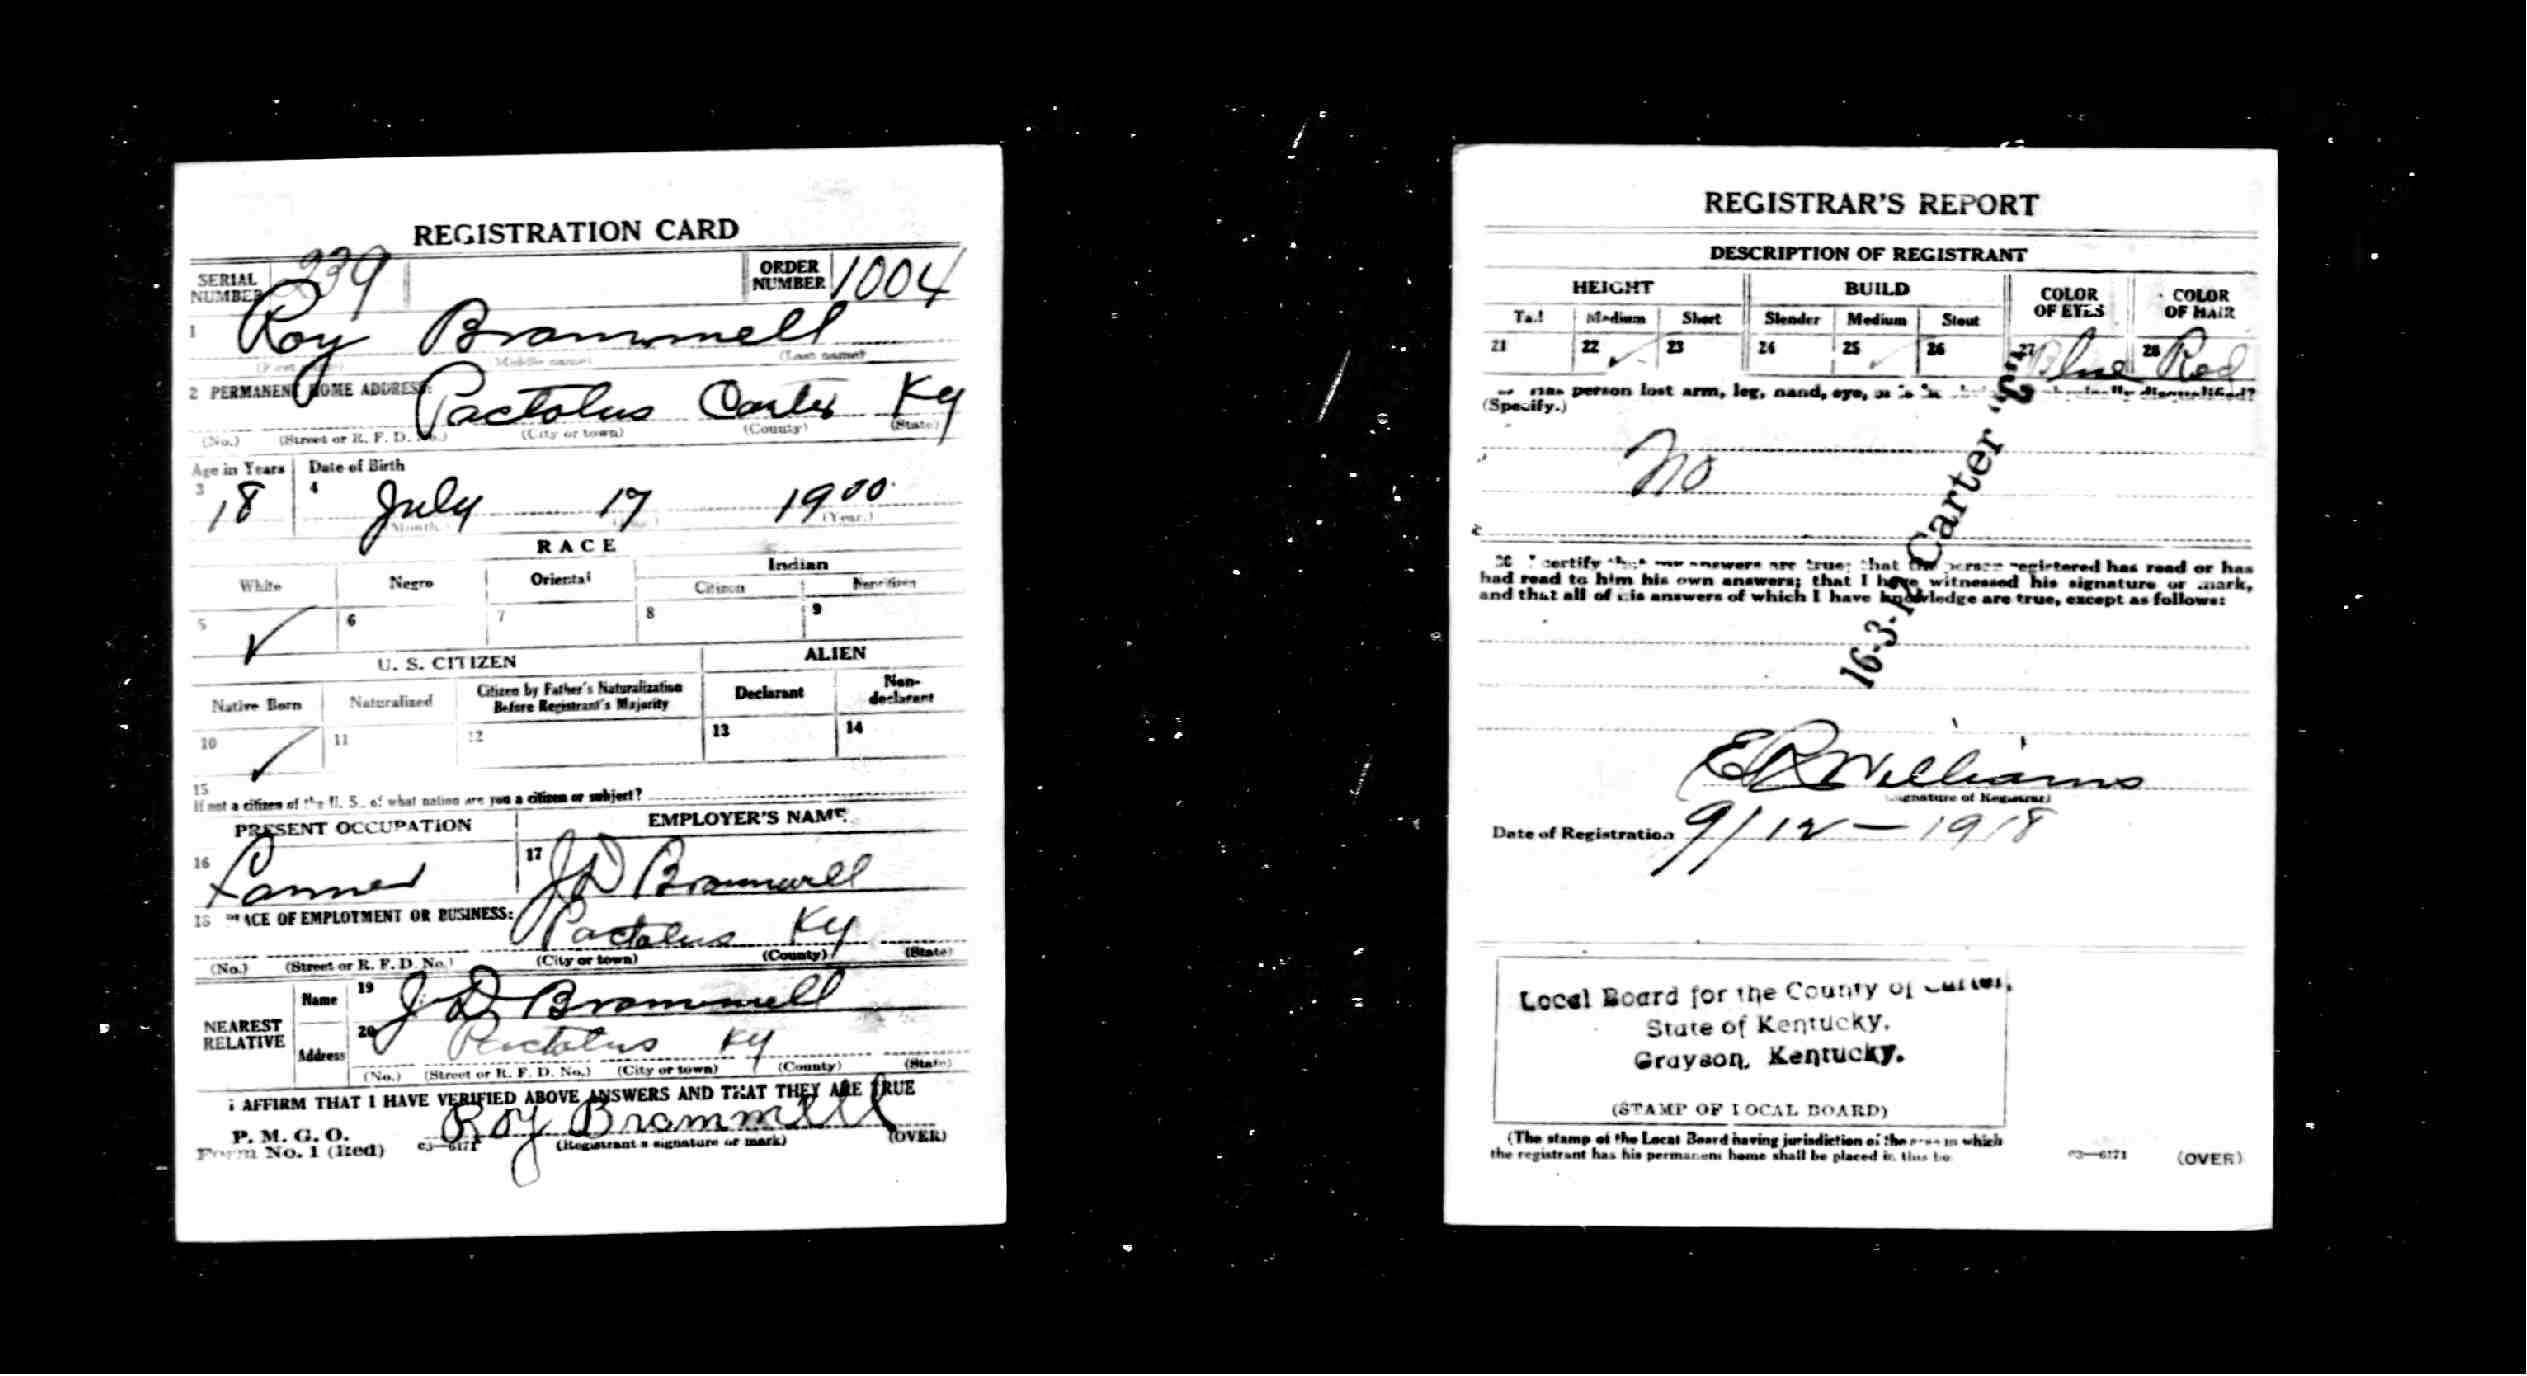 REGISTRATION CARD
SERIAL NUMBER 239 ORDER NUMBER 1004
1 Roy Brammell
(Middle name) (Last name)
2 PERMANENT HOME ADDRESS: Pactolus Carter Ky
(No.) (Street or R. F. D. No.) (City or town) (County) (State)
Age in Years Date of Birth
3 18 4 July 17 1900
(Month.) (Year.)
RACE
White Negro Oriental Indian
Citizen Noncitizen
5 ✓ 6 7 8 9
U. S. CITIZEN ALIEN
Native Born Naturalized Citizen by Father's Naturalization Before Registrant's Majority Declarant Non-declarant
10 ✓ 11 12 13 14
15
If not a citizen of the U. S., of what nation are you a citizen or subject?
PRESENT OCCUPATION EMPLOYER'S NAME
16 Farmer 17 J D Brammell
18 PLACE OF EMPLOYMENT OR BUSINESS:
Pactolus Ky
(No.) (Street or R. F. D. No.) (City or town) (County) (State)
NEAREST RELATIVE
Name 19 J D Brammell
Address 20 Pactolus Ky
(No.) (Street or R. F. D. No.) (City or town) (County) (State)
I AFFIRM THAT I HAVE VERIFIED ABOVE ANSWERS AND THAT THEY ARE TRUE
P. M. G. O.
Form No. 1 (Red) 03—6171 Roy Brammell
(Registrant's signature or mark) (OVER)
REGISTRAR'S REPORT
DESCRIPTION OF REGISTRANT
HEIGHT BUILD COLOR OF EYES COLOR OF HAIR
Tall Medium Short Slender Medium Stout
21 22 ✓ 23 24 25 ✓ 26 27 Blue 28 Red
person lost arm, leg, hand, eye, or disqualified?
(Specify.)
No
16-3-12 Carter "C"
30 I certify that my answers are true; that the person registered has read or has
had read to him his own answers; that I have witnessed his signature or mark,
and that all of his answers of which I have knowledge are true, except as follows:
E R Williams
(Signature of Registrar)
Date of Registration 9/12—1918
Local Board for the County of Carter,
State of Kentucky.
Grayson, Kentucky.
(STAMP OF LOCAL BOARD)
(The stamp of the Local Board having jurisdiction of the area in which
the registrant has his permanent home shall be placed in this box.
03—6171 (OVER)